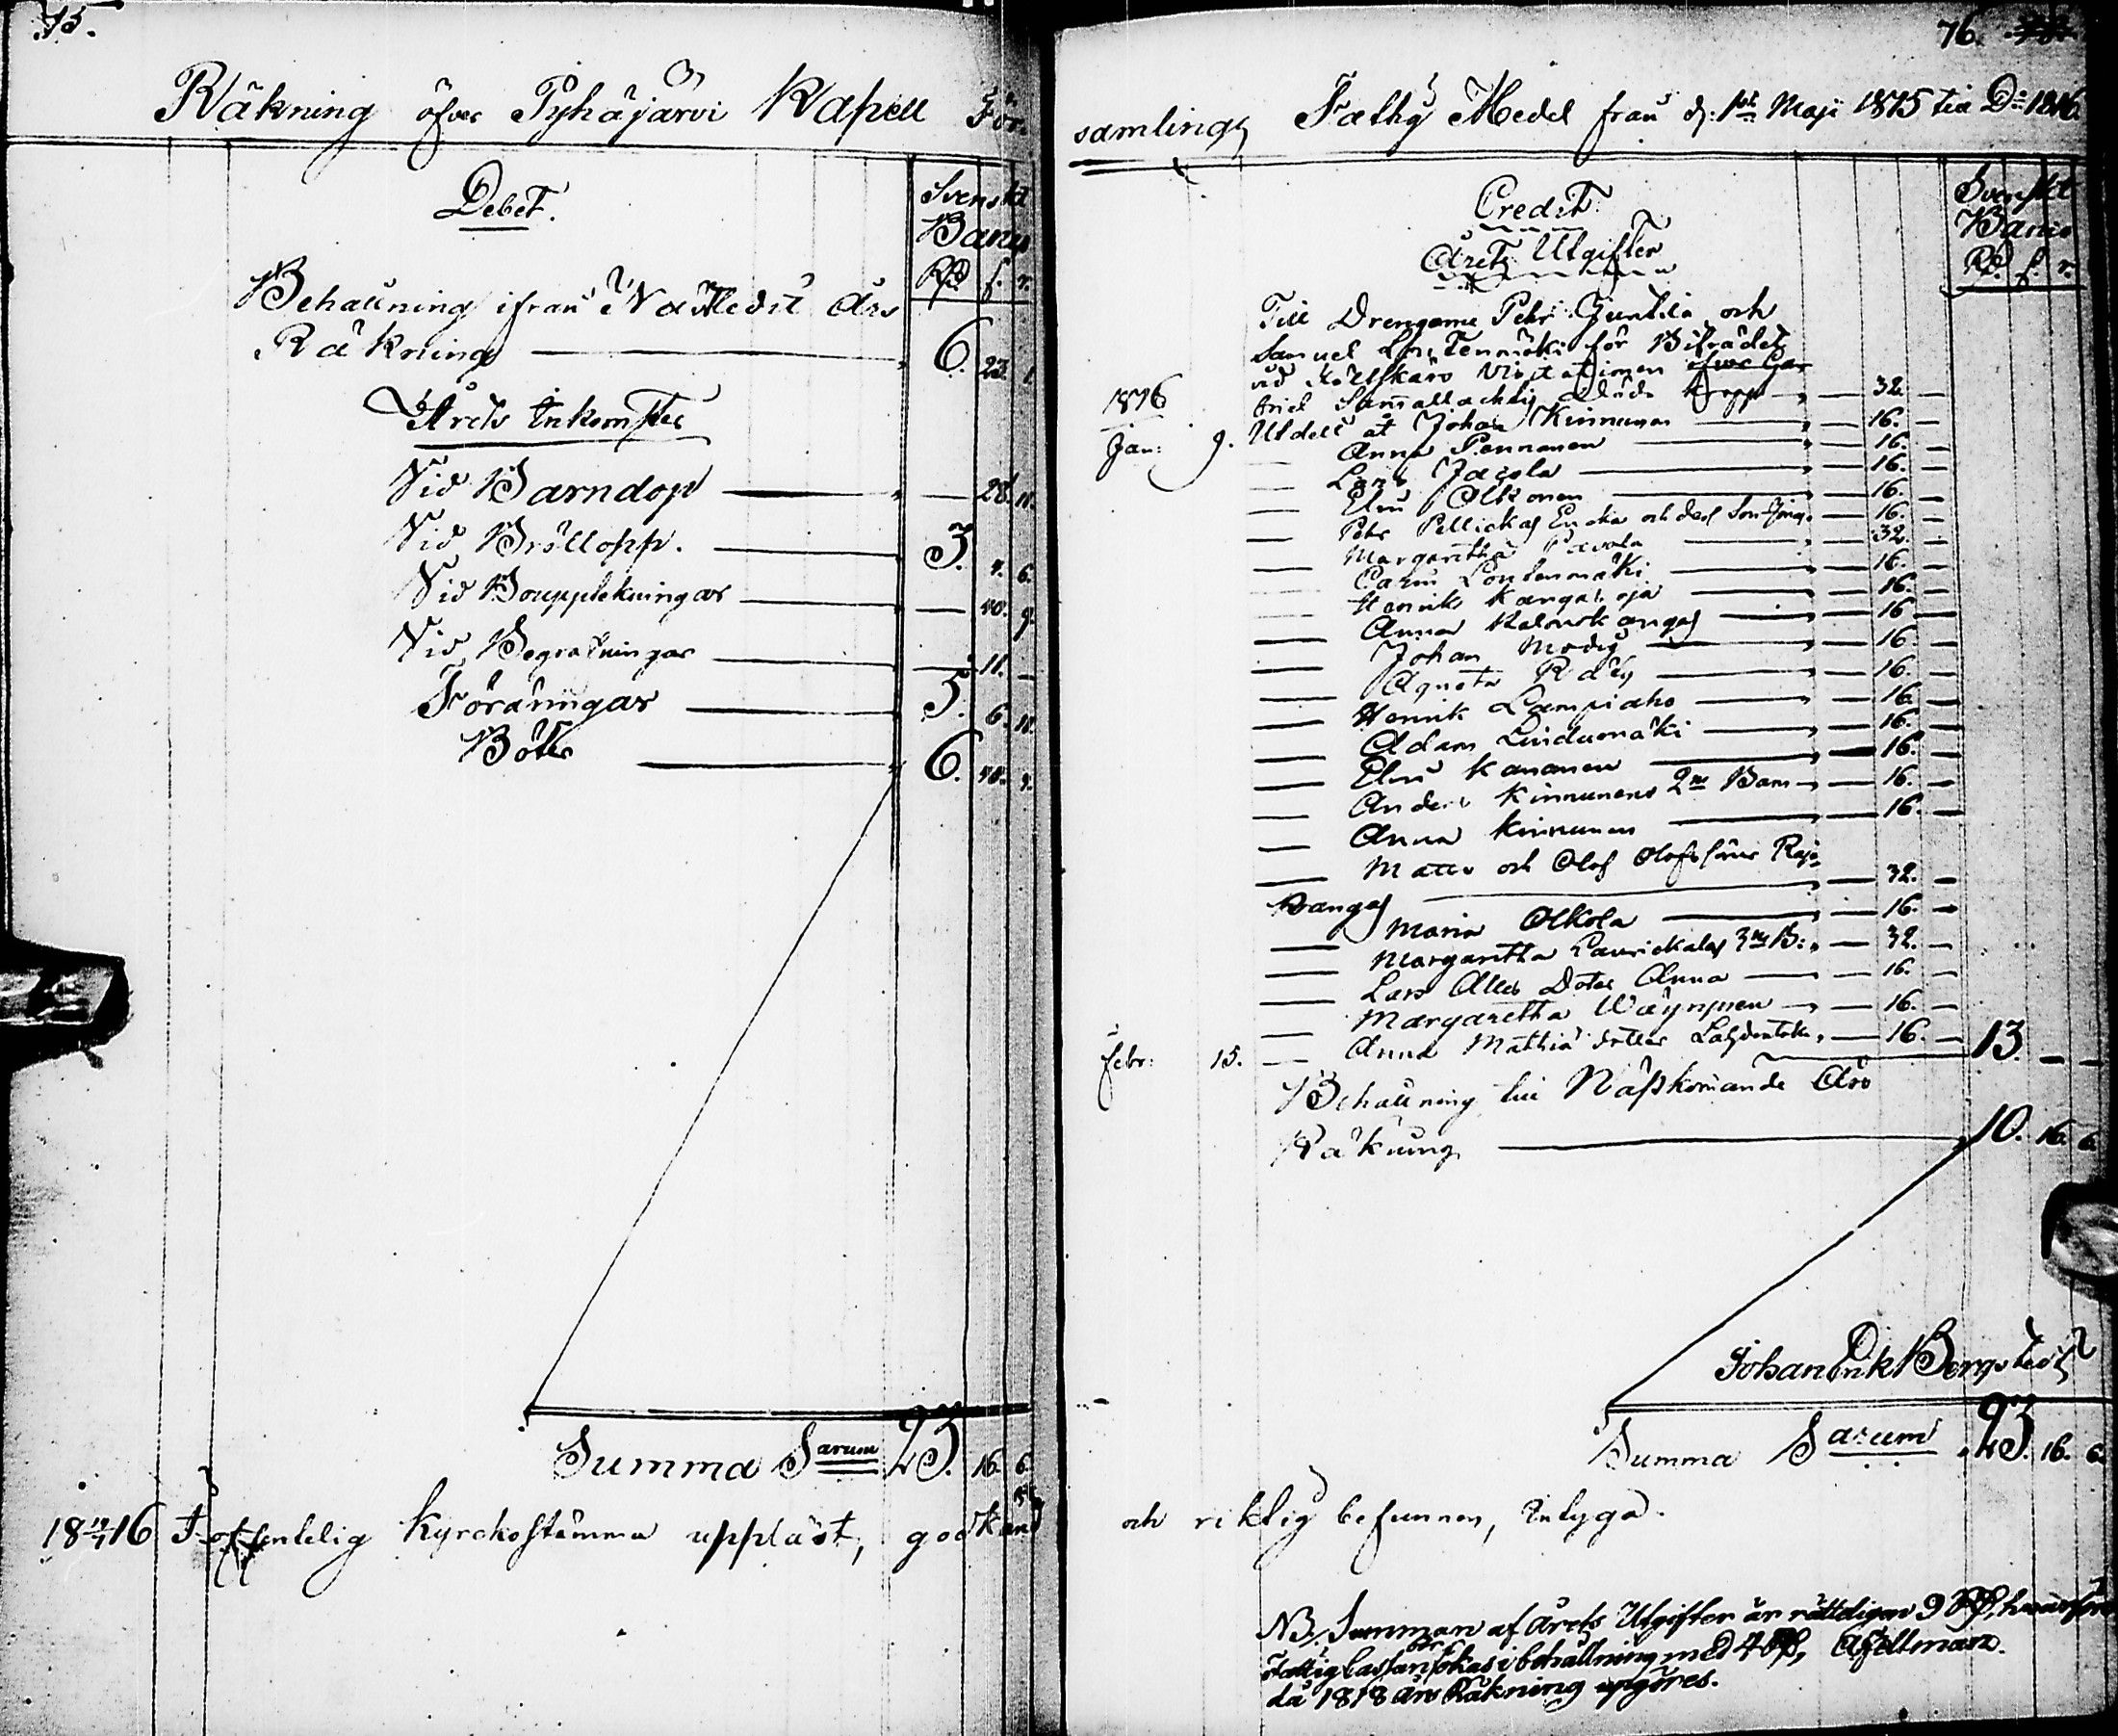 75.
Räkning öfver Pyhäjärvi Kapell För-
Debet.
Svenskt
Banco
Rd s. r.
Behållning ifrån Nästledit års
Räkning 6. 23. 1.
Årets Inkomster
Vid Barndop 28. 11.
Vid Bröllopp. 3. 4. 6.
Vid 40. 9.
Vid Begrafningar 11.
Föräringar 5. 6.
Böter 6. 40.
Summa Sarum 23. 16. 6.
1816 I offentelig Kyrckostämma uppläst, godkänd
76.
samlings Fattig Medel från d: 1sta Maji 1815 till Do 1816.
Credit.
Årets Utgifter
Svenskt
Banco
Rd s. r.
Till Drengarne Petr Juntila och
Samuel för Biträdet
vid Visitationen öfver Ga-
briel döda kropp 32.
1816
Jan: 9. Utdelt åt Johan Kinnunen 16.
Anna Pennanen 16.
Lars 16.
Elin Olkonen 16.
Petr Pellickas Encka och dess Son 16.
Margaretha Pavola 32.
Carin Lontenmäki 16.
Henrik Kangasoja 16.
Anna kangas 16
Johan Modig 16.
Agneta Räty 16.
Henrik Lampiaho 16.
Adam 16.
Elin Kananen 16.
Anders Kinnunens 2ne Barn 16.
Anna Kinnunen 16.
Matts och Olof Olofssöner Raja-
kangas 32.
Maria Olkola 16.
Margaretha Laurickalas 3ne B: 32.
Lars Dotter Anna 16.
Margaretha Wäyrynen 16.
Febr: 15. Anna Mathiæ dotter 16. 13.
Behållning till Nästkommande Års
Räkning 10. 16. 6.
Johan Erik Bergstedt
Summa Sarum 23. 16. 6.
och riktig befunnen, intyga.
NB. Summan af årets Utgifter är rätteligen 9 Rd, hvarföre
fattig Cassan bör ökas i behållning med 4 Rd,
då 1818 års Räkning upgöres.